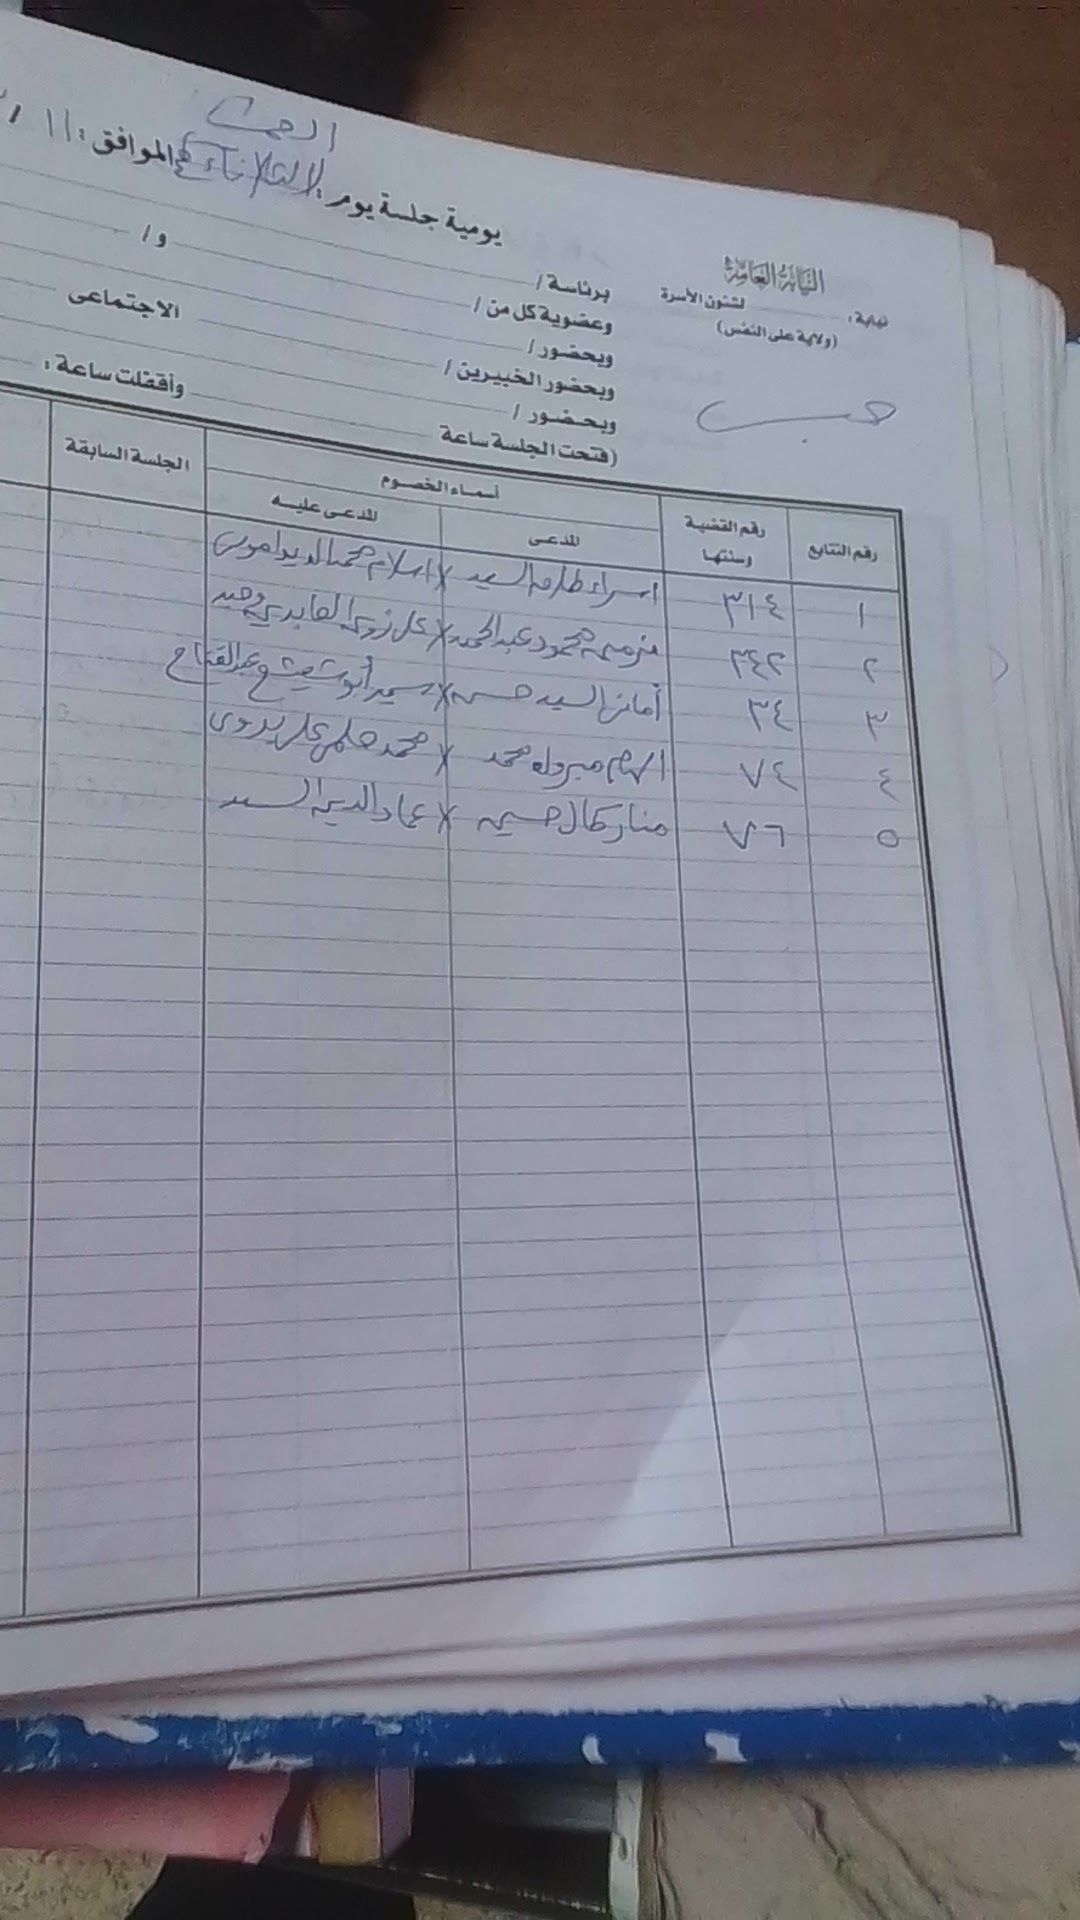 النيابة العامة
نيابة: لشئون الأسرة
(ولاية على النفس)
حسب
السبت
يومية جلسة يوم: الثلاثاء الموافق: ١١ /
برئاسة /
وعضوية كل من / و /
وبحضور /
وبحضور الخبيرين / الاجتماعى
وبحضور /
(فتحت الجلسة ساعة وأقفلت ساعة:
رقم التتابع رقم القضية وسنتها أسماء الخصوم الجلسة السابقة
المدعى المدعى عليه
١ ٣١٤ اسراء طارق السيد × اسلام محمد
٢ ٣٤٢ محمود عبد الحميد × على العابدين
٣ ٣٤ أمانى السيد حسن × سمير أبو عبد الفتاح
٤ ٧٤ الهام مبروك محمد × محمد حلمى على بدوى
٥ ٧٦ منار كمال حسين × عماد الدين السيد